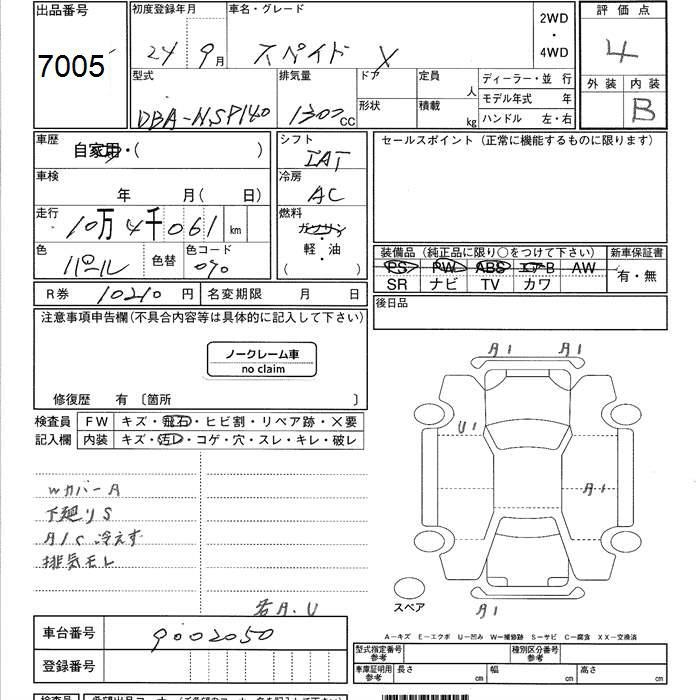 出品番号
7005
初度登録年月
24 9月
車名・グレード
スペイド X
2WD
・
4WD
評価点
4
外装 内装
B
型式
DBA-NSP140
排気量
1300 CC
ドア
形状
定員 人
積載 kg
ディーラー・並 行
モデル年式 年
ハンドル 左・右
車歴
自家用・( )
車検
年 月( 日)
走行
10万4千061 km
色
パール
色替
色コード
070
シフト
IAT
冷房
AC
燃料
ガソリン
・
軽・油
( )
セールスポイント(正常に機能するものに限ります)
装備品(純正品に限り○をつけて下さい)
PS PW ABS エアB AW
SR ナビ TV カワ
新車保証書
有・無
後日品
R券 10210 円 名変期限 月 日
注意事項申告欄(不具合内容等は具体的に記入して下さい)
ノークレーム車
no claim
修復歴 有 〔箇所 〕
検査員
記入欄
FW キズ・飛石・ヒビ割・リペア跡・×要
内装 キズ・汚レ・コゲ・穴・スレ・キレ・破レ
WカバーA
下廻りS
A/C 冷えず
排気モレ
若A.U
A1 A1
U1
A1
A1
スペア
A-キズ E-エクボ U-凹み W-補修跡 S-サビ C-腐食 XX-交換済
車台番号
9002050
登録番号
型式指定番号
参考
種別区分番号
参考
車庫証明用
参考
長さ cm 幅 cm 高さ cm